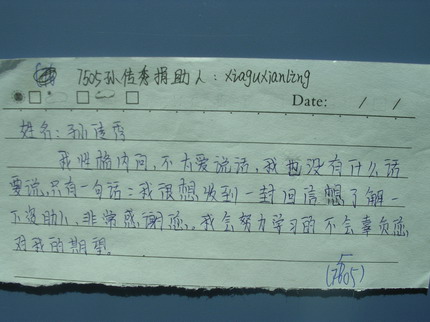 7505孙传秀捐助人：xiaguxianling
Date: / /
姓名：孙传秀
我性格内向，不大爱说话，我也没有什么话
要说，只有一句话：我很想收到一封回信想了解一
下资助人，非常感谢您。我会努力学习的不会辜负您
对我的期望。
(7505)